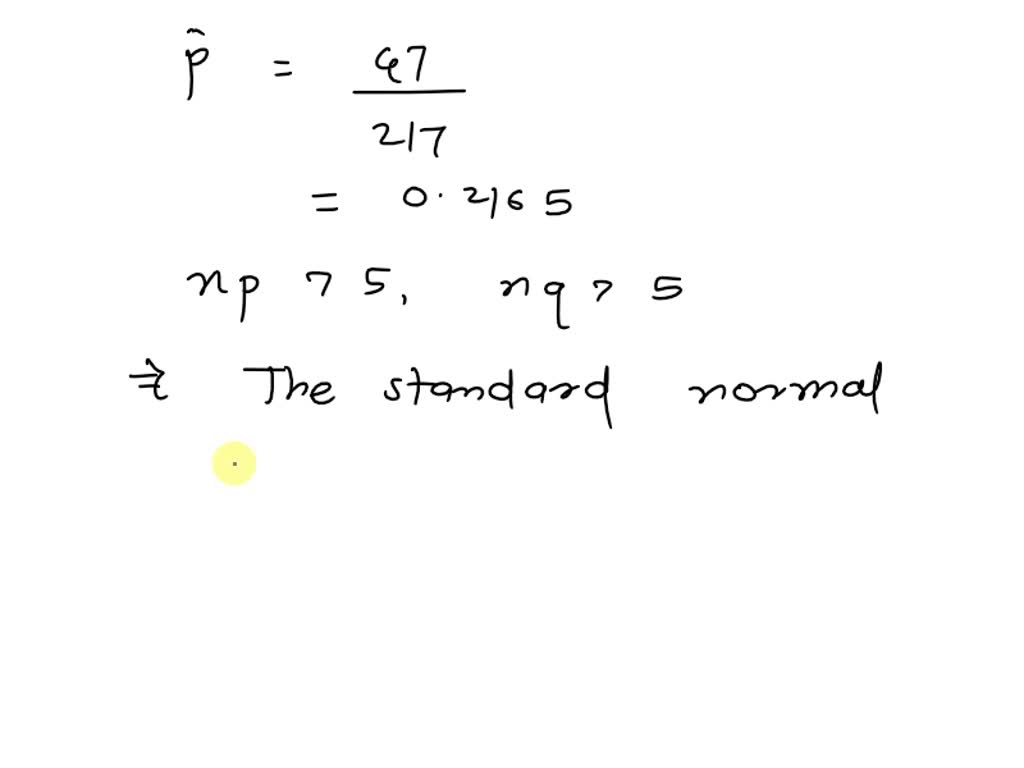 p̂ = 47
217
= 0.2165
np > 5, nq > 5
⇒ The standard normal